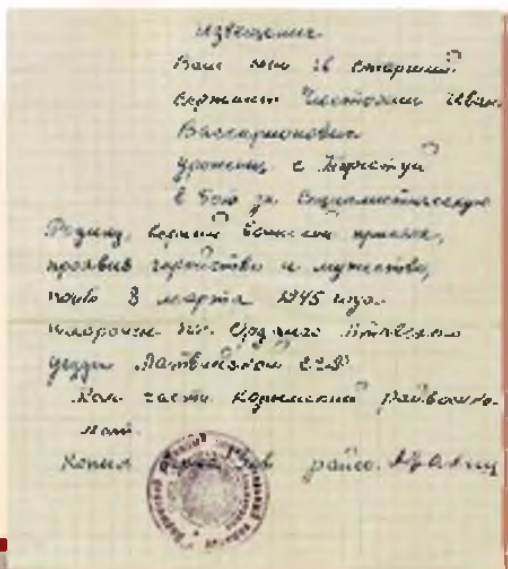 извещение
Ваш сын гв старший
сержант Чистохин Иван
Виссарионович
уроженец с
в бою за Социалистическую
Родину, верный воинской присяге,
проявив геройство и мужество,
погиб 8 марта 1945 года.
похоронен
уезда Латвийской ССР
Ком части райвоен
Копия верна: Зав райсо.